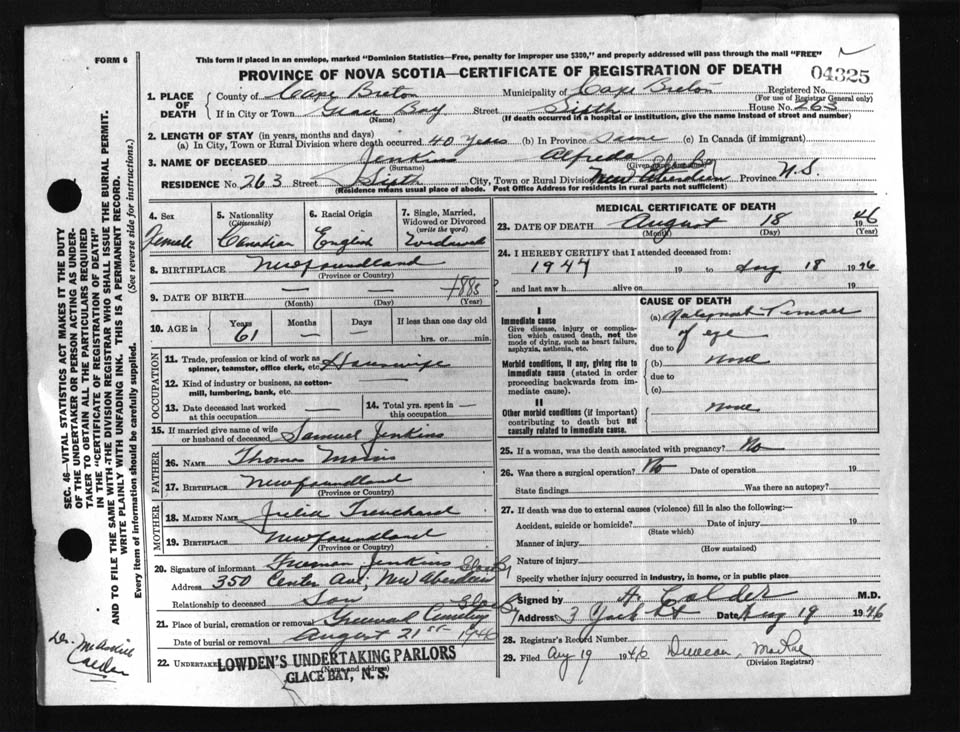 FORM 6
This form if placed in an envelope, marked "Dominion Statistics—Free, penalty for improper use $300," and properly addressed will pass through the mail "FREE"
PROVINCE OF NOVA SCOTIA—CERTIFICATE OF REGISTRATION OF DEATH
04325
1. PLACE OF DEATH
County of Cape Breton Municipality of Cape Breton Registered No.
(For use of Registrar General only)
If in City or Town Glace Bay Street Sixth House No. 263
(Name) (If death occurred in a hospital or institution, give the name instead of street and number)
2. LENGTH OF STAY (in years, months and days)
(a) In City, Town or Rural Division where death occurred 40 Years (b) In Province same (c) In Canada (if immigrant)
3. NAME OF DECEASED Jenkins Alfreda
(Surname)
RESIDENCE No. 263 Street Sixth City, Town or Rural Division New Aberdeen Province N.S.
(Residence means usual place of abode. Post Office Address for residents in rural parts not sufficient)
4. Sex
Female
5. Nationality
(Citizenship)
Canadian
6. Racial Origin
English
7. Single, Married, Widowed or Divorced
(write the word)
Widowed
8. BIRTHPLACE Newfoundland
(Province or Country)
9. DATE OF BIRTH 1885
(Month) (Day) (Year)
10. AGE in Years Months Days If less than one day old
61 — — hrs. or min.
OCCUPATION
11. Trade, profession or kind of work as spinner, teamster, office clerk, etc. Housewife
12. Kind of industry or business, as cotton-mill, lumbering, bank, etc.
13. Date deceased last worked at this occupation
14. Total yrs. spent in this occupation
15. If married give name of wife or husband of deceased Samuel Jenkins
FATHER
16. NAME Thomas Morris
17. BIRTHPLACE Newfoundland
(Province or Country)
MOTHER
18. MAIDEN NAME Julia Trenchard
19. BIRTHPLACE Newfoundland
(Province or Country)
20. Signature of informant Freeman Jenkins
Address 350 Center Ave, New Aberdeen
Relationship to deceased Son
21. Place of burial, cremation or removal Greenwood Cemetery
Date of burial or removal August 21st 1946
22. UNDERTAKER
(Name and address)
LOWDEN'S UNDERTAKING PARLORS
GLACE BAY, N. S.
MEDICAL CERTIFICATE OF DEATH
23. DATE OF DEATH August 18 1946
(Month) (Day) (Year)
24. I HEREBY CERTIFY that I attended deceased from:
1944 19 to Aug 18 1946
and last saw h alive on 19
CAUSE OF DEATH
I
Immediate cause
Give disease, injury or complication which caused death, not the mode of dying, such as heart failure, asphyxia, asthenia, etc.
(a) Malignant Tumour
of eye
due to
Morbid conditions, if any, giving rise to immediate cause (stated in order proceeding backwards from immediate cause).
(b) none
due to
(c)
II
Other morbid conditions (if important) contributing to death but not causally related to immediate cause.
none
25. If a woman, was the death associated with pregnancy? No
26. Was there a surgical operation? No Date of operation 19
State findings Was there an autopsy?
27. If death was due to external causes (violence) fill in also the following:—
Accident, suicide or homicide? Date of injury 19
(State which)
Manner of injury
(How sustained)
Nature of injury
Specify whether injury occurred in industry, in home, or in public place
Signed by A. Calder M.D.
Address 3 York St Date Aug 19 1946
28. Registrar's Record Number
29. Filed Aug 19 1946 Duncan MacRae
(Division Registrar)
SEC. 46—VITAL STATISTICS ACT MAKES IT THE DUTY
OF THE UNDERTAKER OR PERSON ACTING AS UNDER-
TAKER TO OBTAIN ALL THE PARTICULARS REQUIRED
IN THE "CERTIFICATE OF REGISTRATION OF DEATH"
AND TO FILE THE SAME WITH THE DIVISION REGISTRAR WHO SHALL ISSUE THE BURIAL PERMIT.
WRITE PLAINLY WITH UNFADING INK. THIS IS A PERMANENT RECORD.
Every item of information should be carefully supplied. (See reverse side for instructions.)
Dr.
Calder